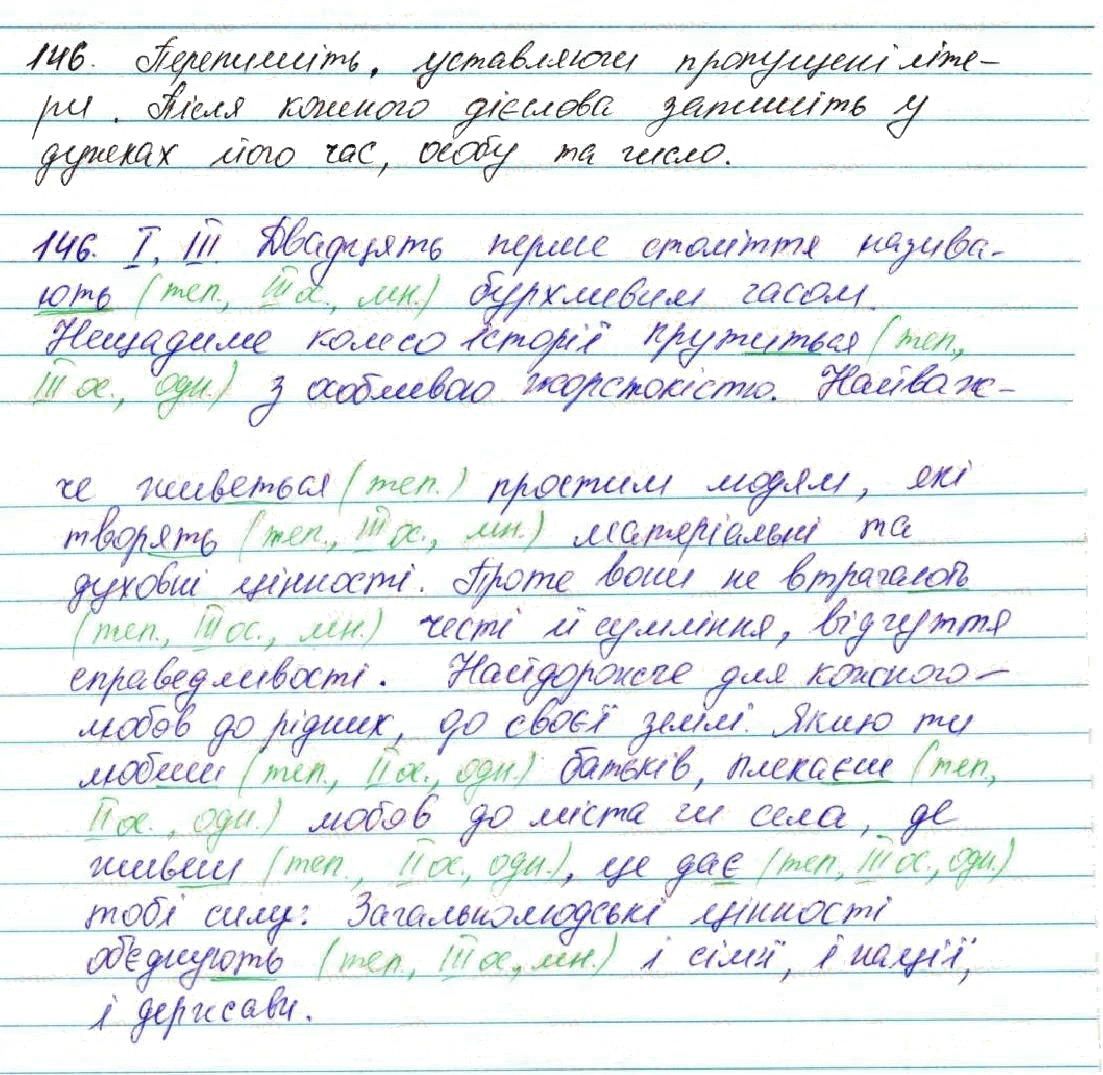 146. Перепишіть, уставляючи пропущені літе-
ри. Після кожного дієслова запишіть у
дужках його час, особу та число.
146. I, III Двадцять перше століття назива-
ють (теп., III ос., мн.) бурхливим часом.
Нещадиме колесо історії крутиться (теп.,
III ос., одн.) з особливою жорстокістю. Найваж-
че живеться (теп.) простим людям, які
творять (теп., III ос., мн.) матеріальні та
духовні цінності. Проте вони не втрачають
(теп., III ос., мн.) честі й сумління, відчуття
справедливості. Найдорожче для кожного –
любов до рідних, до своєї землі. Якщо ти
любиш (теп., II ос., одн.) батьків, плекаєш (теп.,
II ос., одн.) любов до міста чи села, де
живеш (теп., II ос., одн.), це дає (теп., III ос., одн.)
тобі силу. Загальнолюдські цінності
об'єднують (теп., III ос., мн.) і сім'ї, і нації,
і держави.